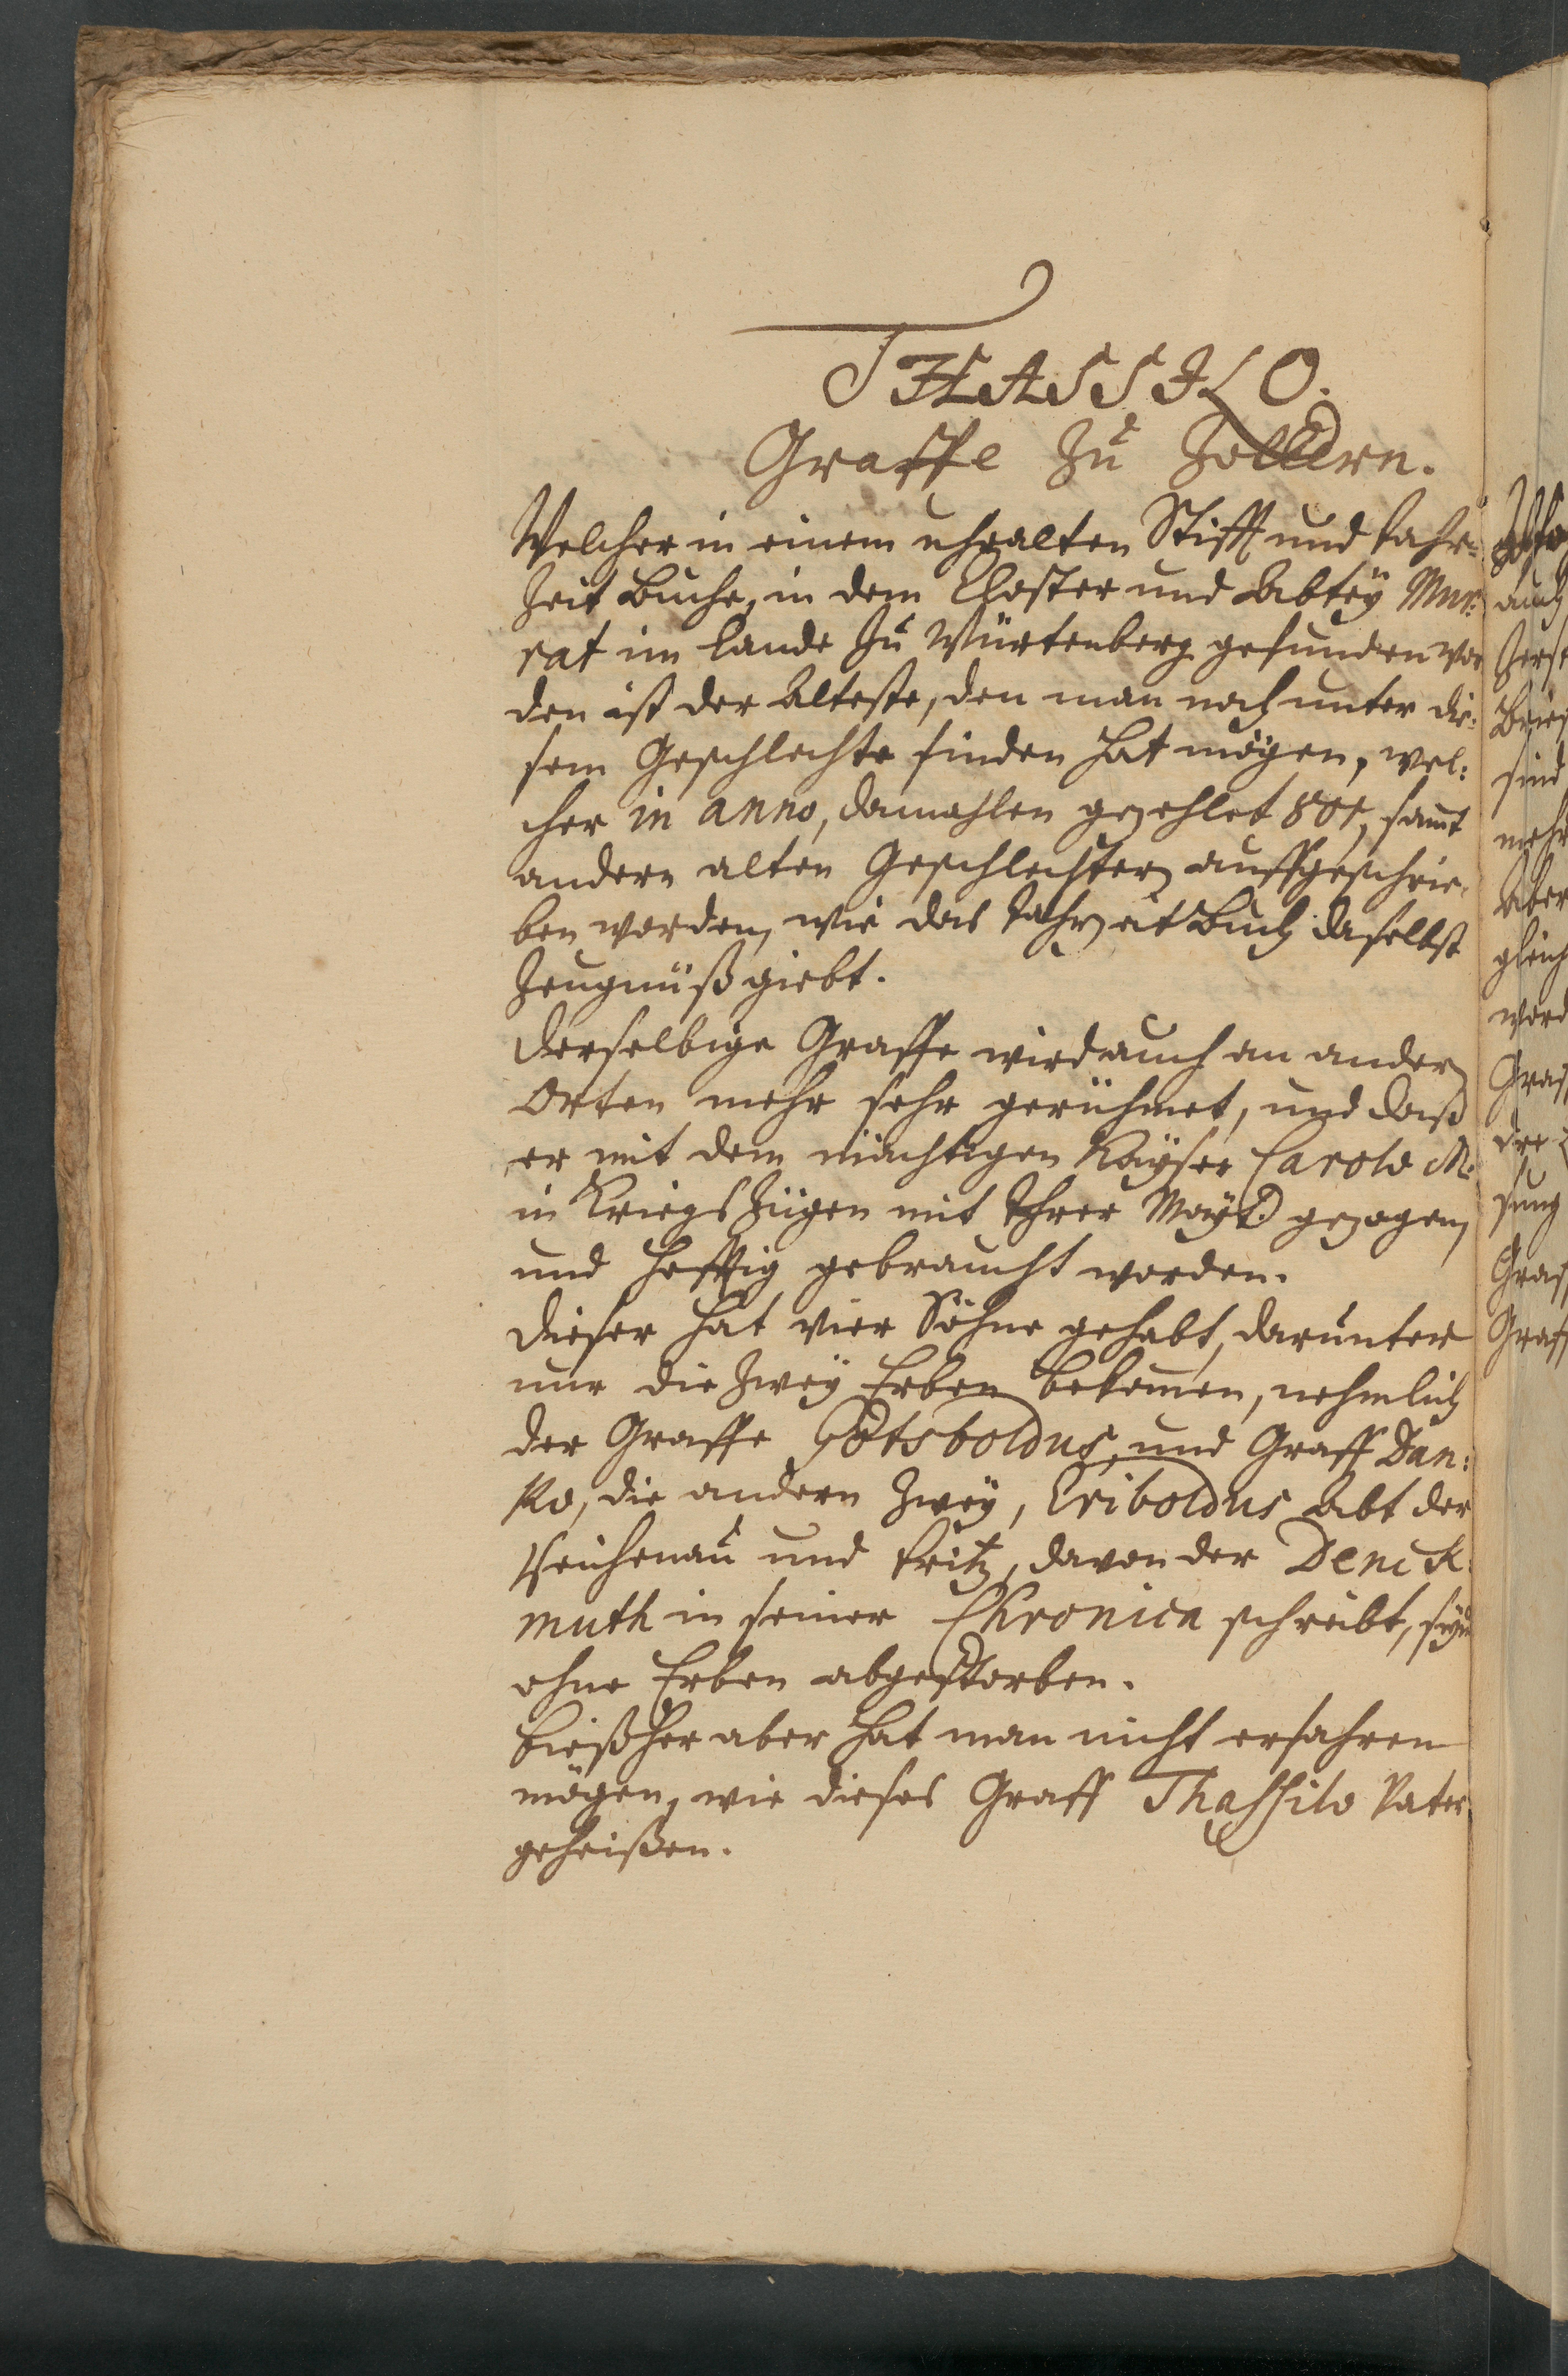 THASSILO.
Graffe Zu Zollern.
Welcher in einem uhralten Stifft und Jahr-
Zeit Buche, in dem Closter und Abtey Mur:
rat im Lande Zu Würtenberg gefunden wor
den ist der Älteste, den man noch unter die:
sem Geschlechte finden hat mögen, wel:
cher in anno, damahlen gezehlet 801, samt
andern alten Geschlechtern auffgeschrie,
ben worden, wie das Jahrzeit Buch daselbst
Zeugnüß giebt.
Derselbige Graffe wird auch an andern
Orten mehr sehr gerühmet, und daß
er mit dem mächtigen Kayser Carolo M.
in Kriegs Zügen mit Ihrer Mayt. gezogen,
und hefftig gebraucht worden.
Dieser hat vier Söhne gehabt, darunter
nur die Zwey Erben bekomen, nehmlich
der Graffe Gotsboldus, und Graff Dan:
Ko, die andern Zwey, Eriboldus Abt der
Reichenau und Fritz, davon der Denck
muth in seiner Chronica schreibt, seyn
ohne Erben abgestorben.
Bißher aber hat man nicht erfahren
mögen, wie dieses Graff Thassilo Vater
geheißen.
auch
sind
mehr
Aber
gleich
word
Graf
Graf
Graf